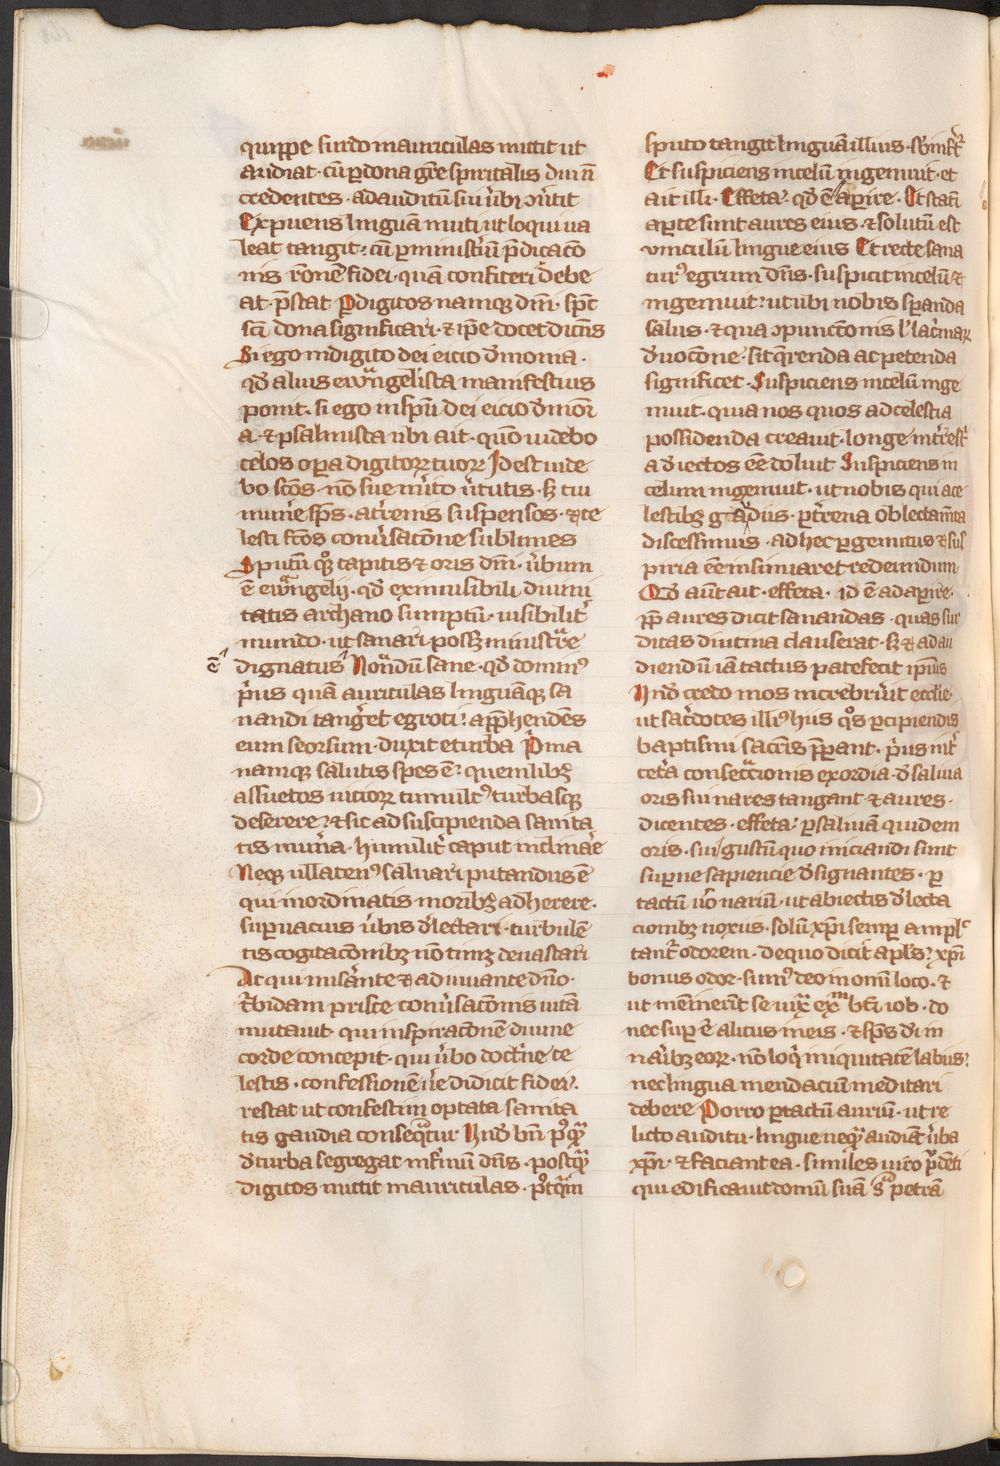 quippe surdo in auriculas mittit ut
audiat · cū ꝑ dona grē spiritalis diu nō
credentes · ad auditū sui ūbi ꝯūtit
Expuens linguam muti ut loqui ua
leat tangit · cū ꝑ ministiū p̄dicaco
nis rōnē fidei · quā confiteri debe
at · p̄stat Ꝑ digitos namqꝫ dn̄i · spc̄
sc̄i dona significari · ⁊ ip̄e docet dicēs
Si ego in digito dei eicio d̄monia ·
qd̄ alius ewāngelista manifestius
ponit · si ego in spū dei eicio d̄moni
a · ⁊ psalmista ubi ait · qm̄ uidebo
celos oꝑa digitoꝝ tuoꝝ Id est uide
bo sc̄os · nō sue mīto ūtutis · sꝫ tui
munē sp̄s · a tr̄enis suspensos · ⁊ ce
lesti fc̄os conūsacōne sublimes
Sputū qͦꝫ capitis ⁊ oris dn̄i · ūbum
ē ewāngelij · qd̄ ex inuisibili diuini
tatis archano sumptū · uisibilit̄
mundo · ut sanari possꝫ ministrāe
ē dignatus Notandū sane · qd̄ dominꝰ
p̄us quā auriculas linguāqꝫ sa
nandi tanḡet egroti · app̄hendēs
eum seorsum · duxit e turba Prima
namqꝫ salutis spes ē · quemlibꝫ
assuetos uicioꝝ tumultꝰ turbasqꝫ
deserere · ⁊ sic ad suscipienda sanita
tis mun̄a · humilit̄ caput inclināe
Neqꝫ ullatenꝰ saluari putandus ē
qui inordinatis moribꝫ adherere ·
suꝑuacuis ūbis d̄lectari · turbulē
tis cogitacōnibꝫ nō timꝫ deuastari
At qui misāte ⁊ adiuuante dn̄o ·
t̄bidam priste conūsacōnis uitā
mutauit · qui inspiracōnē diuine
corde concepit · qui ūbo doctīne ce
lestis · confessionē ūe didicit fidei ·
restat ut confestim optata sanita
tis gaudia consequātur Und̄ bn̄ pꝰqꝫ
d̄ turba segregat infīmū dn̄s · postqꝫ
digitos mittit in auriculas · pꝰtqm̄
sputo tangit linguā illius · s̄infert̄
Et suspiciens in celū ingemuit · et
ait illi · Effeta · qd̄ ē adaꝑire · Et statī
aꝑte sunt aures eius · ⁊ solutū est
vinculū lingue eius Et recte sana
turꝰ egrum dn̄s · suspicit in celū ⁊
ingemuit · ut ubi nobis sꝑanda
salus · ⁊ qua ꝯpunctōnis l̄ lac̄maꝝ
d̄uocōne · sit q̄renda ac petenda
significet · Suspiciens in celū inge
muit · quia nos quos ad celestia
possidenda creauit · longe in t̄rest̄
a d̄iectos eē doluit Suspiciens in
celum ingemuit · ut nobis qui a ce
lestibꝫ gaudiis · ꝑ t̄rena oblectam̄ta
discessimus · ad hec ꝑ gemitus ⁊ sus
piria eē insinuaret redeundum
Qd̄ aut̄ ait · effeta · id ē adaꝑire ·
pp̄ aures dicit sanandas · quas sur
ditas diutina clauserat · sꝫ ⁊ ad au
diendū iā tactus patefecit ip̄ius
Und̄ credo mos increbūit ecclie ·
ut sac̄dotes illiꝰ hiis qͦs ꝑcipiendis
baptismi sacrīs p̄ꝑant · p̄us int̄
cet̄a consecrācionis exordia · d̄ saliua
oris sui nares tangant · ⁊ aures ·
dicentes · effeta · ꝑ saliuā quidem
oris · sui gustū quo iniciandi sunt
suꝑne sapiencie d̄signantes · ꝑ
tactū ūo nariū · ut abiectis d̄lecta
cionibꝫ noxiis · solū xp̄i semꝑ ampleͨ
tant̄ odorem · de quo dicit apl̄s · xp̄i
bonus odor · sumꝰ deo in omī loco · ⁊
ut meīnerīt se iuxͣ exm̄ bt̄i iob · do
nec suꝑ ē alitus in eis · ⁊ sp̄s d̄i in
narībꝫ eoꝝ · nō loqͥ iniquitatē labiis ·
nec lingua mendaciū meditari
debere Porro ꝑ tactū auriū · ut re
licto auditu · lingue neqꝫ audiāt ūba
xp̄i · ⁊ faciant ea · similes uiro p̄dēti
qui edificauit domū suā sͣ petrā